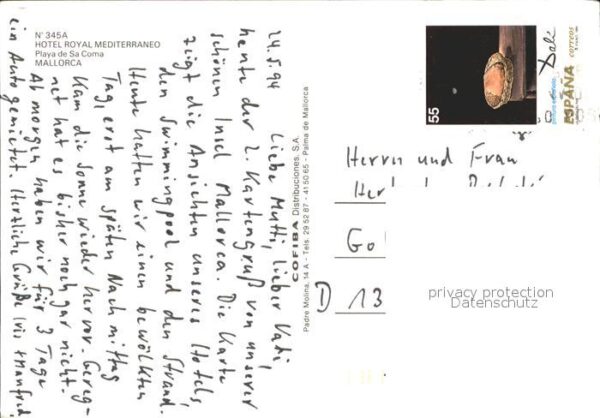 N° 345A
HOTEL ROYAL MEDITERRANEO
Playa de Sa Coma
MALLORCA
24.5.94
Liebe Mutti, lieber Vati,
heute der 2. Kartengruß von unserer
schönen Insel Mallorca. Die Karte
zeigt die Ansichten unseres Hotels,
den Swimmingpool und den Strand.
Heute hatten wir einen bewölkten
Tag, erst am späten Nachmittag
kam die Sonne wieder hervor. Gereg-
net hat es bisher noch gar nicht.
Ab morgen haben wir für 3 Tage
ein Auto gemietet. Herzliche Grüße Iris + Manfred
COFIBA Distribuciones, S.A.
Padre Molina, 14 A - Tels. 29 52 87 - 41 50 65 - Palma de Mallorca
55
Dalí
correos
ESPAÑA
Herrn und Frau
Go
D 13
privacy protection
Datenschutz